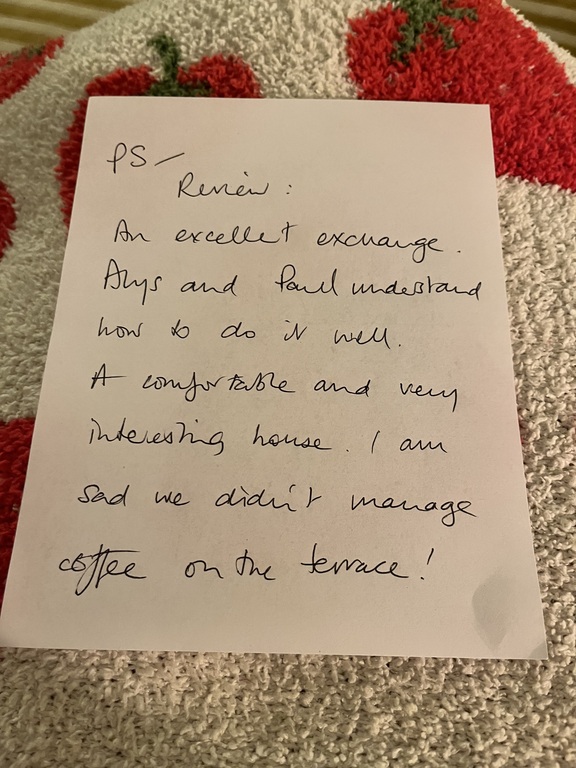 PS/
Review:
An excellet exchange.
Alys and Paul understand
how to do it well.
A comfortable and very
interesting house. I am
sad we didn't manage
coffee on the terrace!